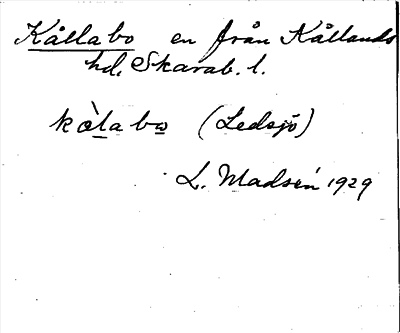 Kållabo en från Kållands
hd. Skarab. l.
kòlabo (Ledsjö)
L. Madsén 1929